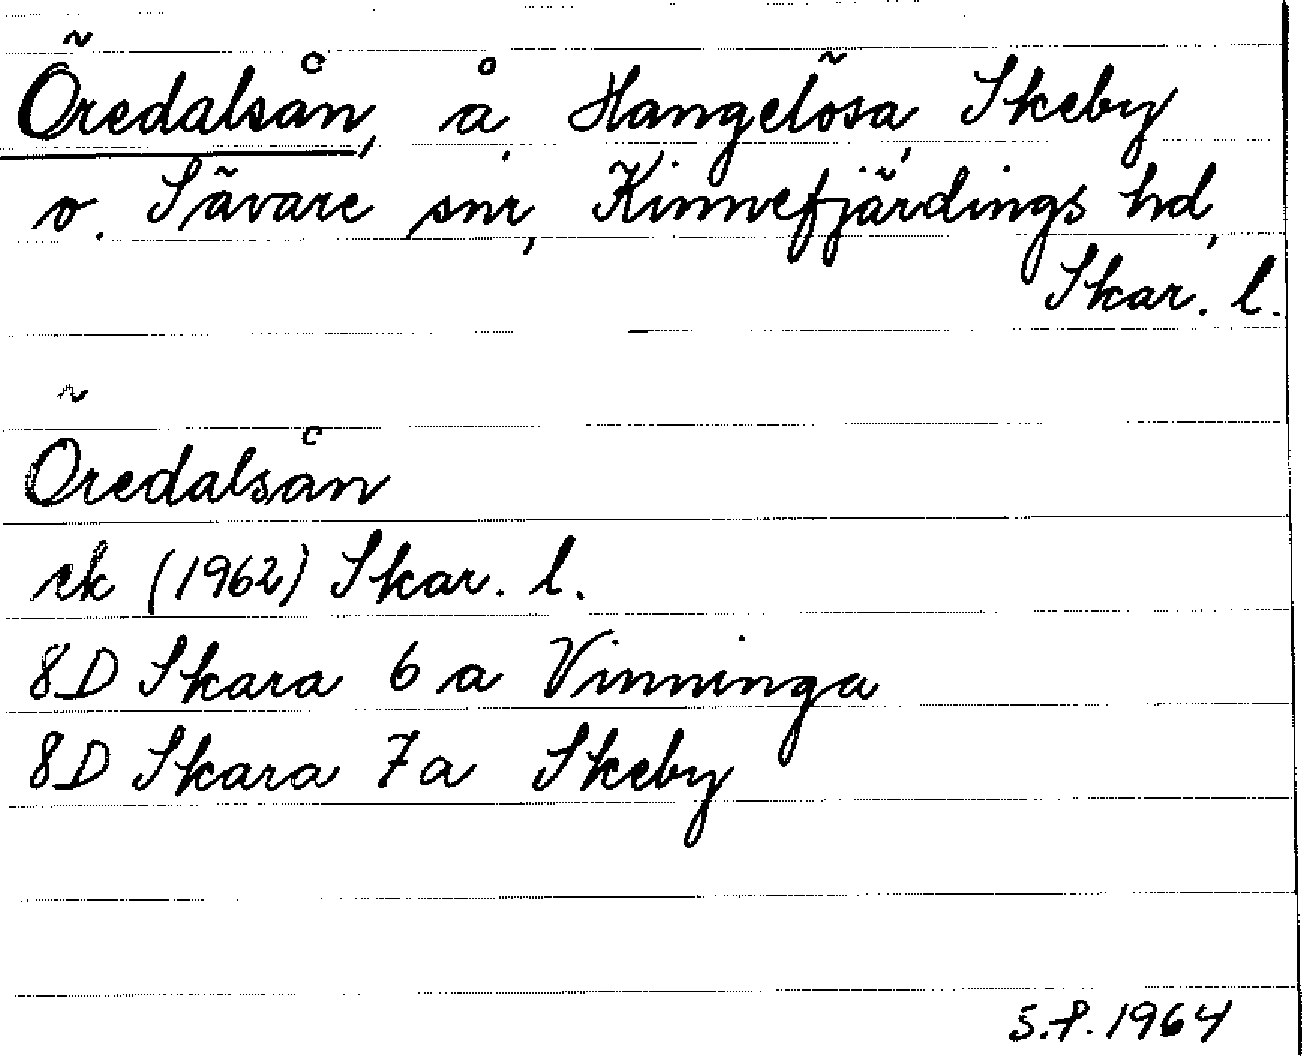 Öredalsån, å, Hangelösa, Skeby
o. Sävare snr, Kinnefjärdings hd,
Skar. l.
Öredalsån
ek (1962) Skar. l.
8D Skara 6 a Vinninga
8D Skara 7a Skeby
S.P. 1964